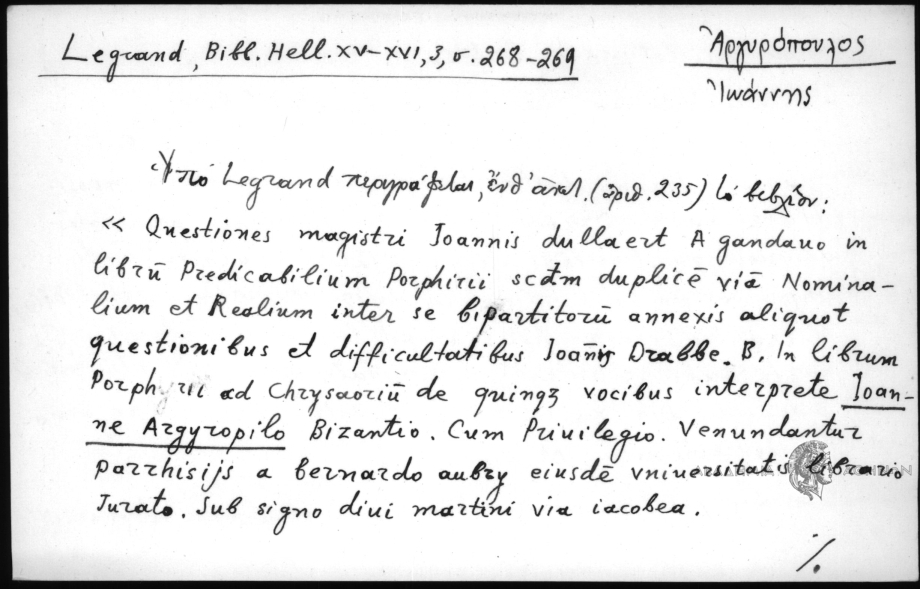 Legrand, Bibl. Hell. XV–XVI, 3, σ. 268–269
Ἀργυρόπουλος
Ἰωάννης
Ὑπό Legrand περιγράφεται, ἔνθ' ἀνωτ. (ἀριθ. 235) τό βιβλίον:
« Questiones magistri Joannis dullaert A gandauo in
librū Predicabilium Porphirii scđm duplicē viā Nomina-
lium et Realium inter se bipartitorū annexis aliquot
questionibus et difficultatibus Joānis Drabbe. B. In librum
Porphyrii ad Chrysaoriū de quinqꝫ vocibus interprete Joan-
ne Argyropilo Bizantio. Cum Priuilegio. Venundantur
parrhisijs a bernardo aubry eiusdē vniuersitatis librario
Jurato. Sub signo diui martini via iacobea.
%.